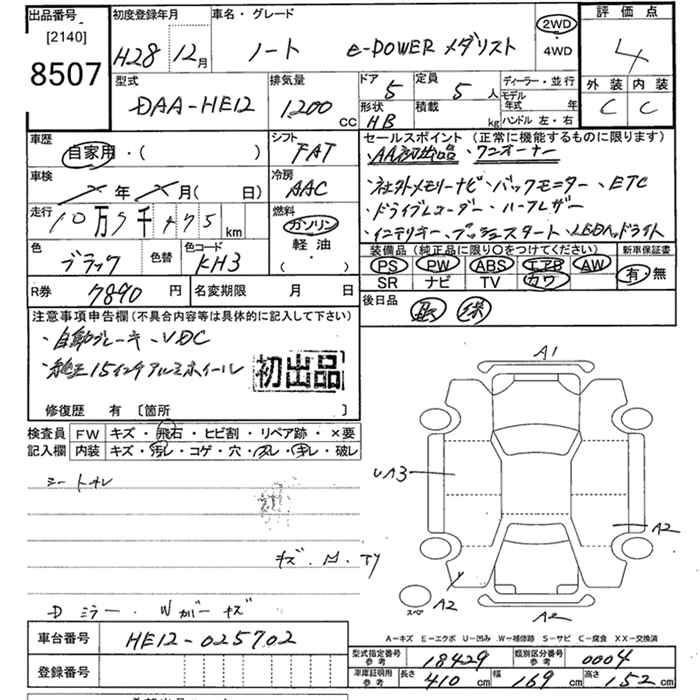 出品番号
[2140]
8507
初度登録年月
H28 12月
車名・グレード
ノート e-POWER メダリスト
2WD
・
4WD
評価点
4
外装 内装
C C
型式
DAA-HE12
排気量
1200 cc
ドア
5
定員
5 人
形状
HB
積載
kg
ディーラー・並行
モデル
年式 年
ハンドル 左・右
車歴
自家用・( )
シフト
FAT
車検
年 月( 日)
冷房
AAC
走行
10万 千 75 km
燃料
ガソリン
軽油
( ・ )
色
ブラック
色替
色コード
KH3
セールスポイント (正常に機能するものに限ります)
AA初出品・ワンオーナー
・社外メモリーナビ・バックモニター・ETC
・ドライブレコーダー・ハーフレザー
・インテリキー・プッシュスタート・LEDヘッドライト
装備品 (純正品に限り○をつけてください)
PS PW ABS エアB AW
SR ナビ TV カワ
新車保証書
有・無
R券 7890 円
名変期限 月 日
後日品
取 保
注意事項申告欄(不具合内容等は具体的に記入して下さい)
・自動ブレーキ・VDC
・純正15インチアルミホイール
初出品
修復歴 有 [箇所 ]
検査員 FW キズ・飛石・ヒビ割・リペア跡・×要
記入欄 内装 キズ・汚レ・コゲ・穴・スレ・キレ・破レ
シートスレ
キズ・
Dミラー・Wガーキズ
A1
UA3
A2
A2
A2
スペア
A-キズ E-エクボ U-凹み W-補修跡 S-サビ C-腐食 XX-交換済
車台番号 HE12-025702
登録番号
型式指定番号
参考
18429
類別区分番号
参考
0004
車庫証明用
参考
長さ 410 cm 幅 169 cm 高さ 152 cm